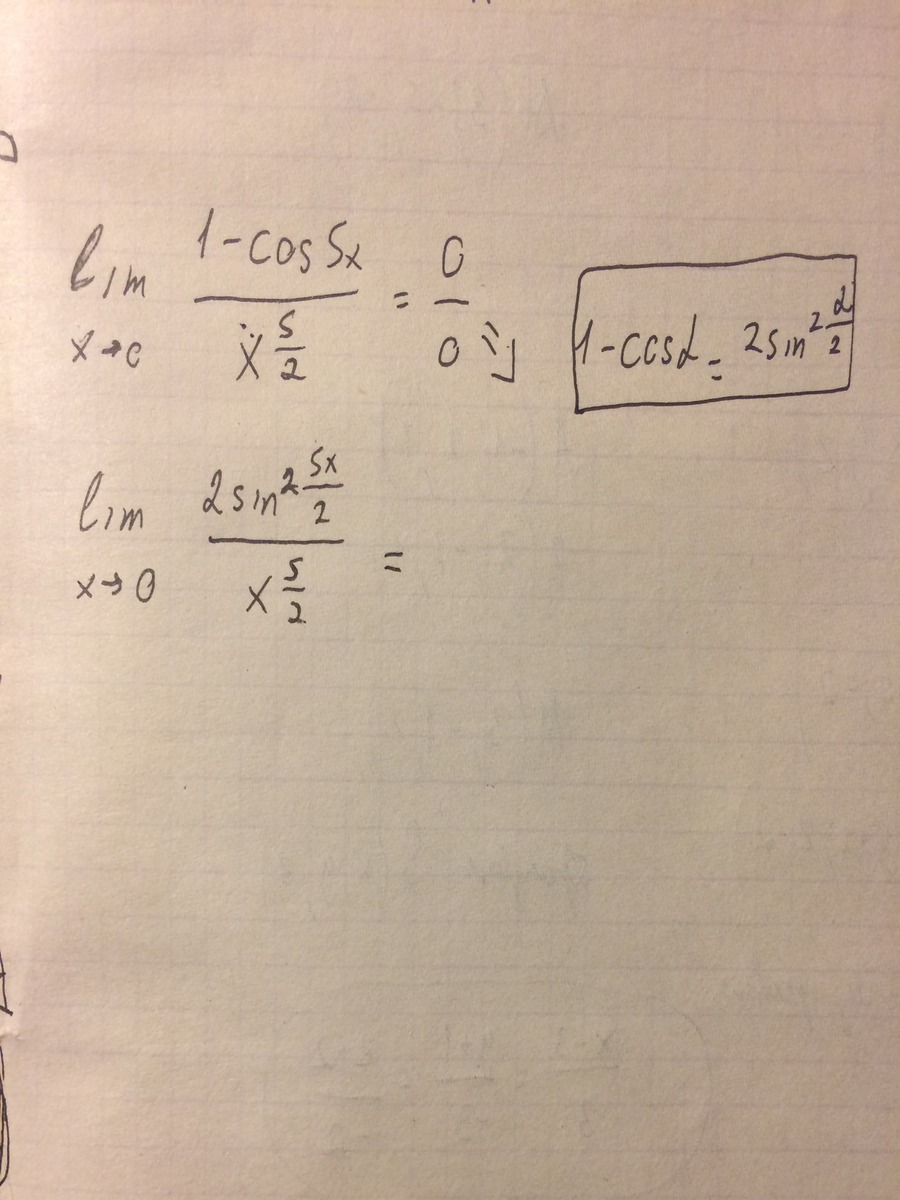 lim x→0 (1-cos5x)/(x^(5/2)) = 0/0 ; 1-cosα = 2sin²(α/2)
lim x→0 (2sin²(5x/2))/(x^(5/2)) =